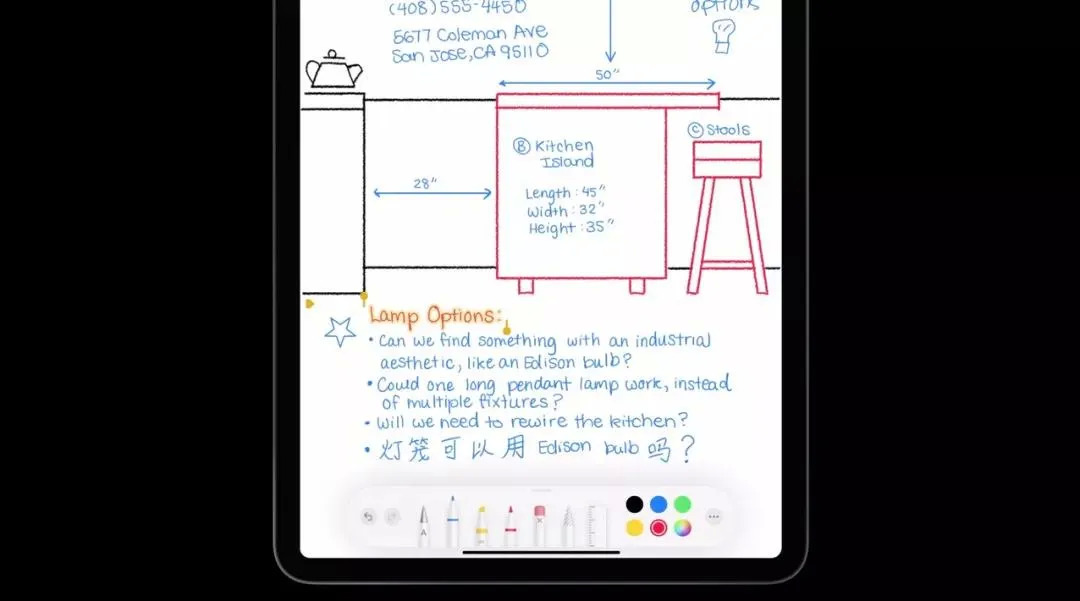 (408) 555-4450
options
5677 Coleman Ave
San Jose, CA 95110
50"
Ⓒ Stools
Ⓑ Kitchen
Island
28"
Length: 45"
Width: 32"
Height: 35"
Lamp Options:
• Can we find something with an industrial
aesthetic, like an Edison bulb?
• Could one long pendant lamp work, instead
of multiple fixtures?
• Will we need to rewire the kitchen?
• 灯笼可以用 Edison bulb 吗?
A